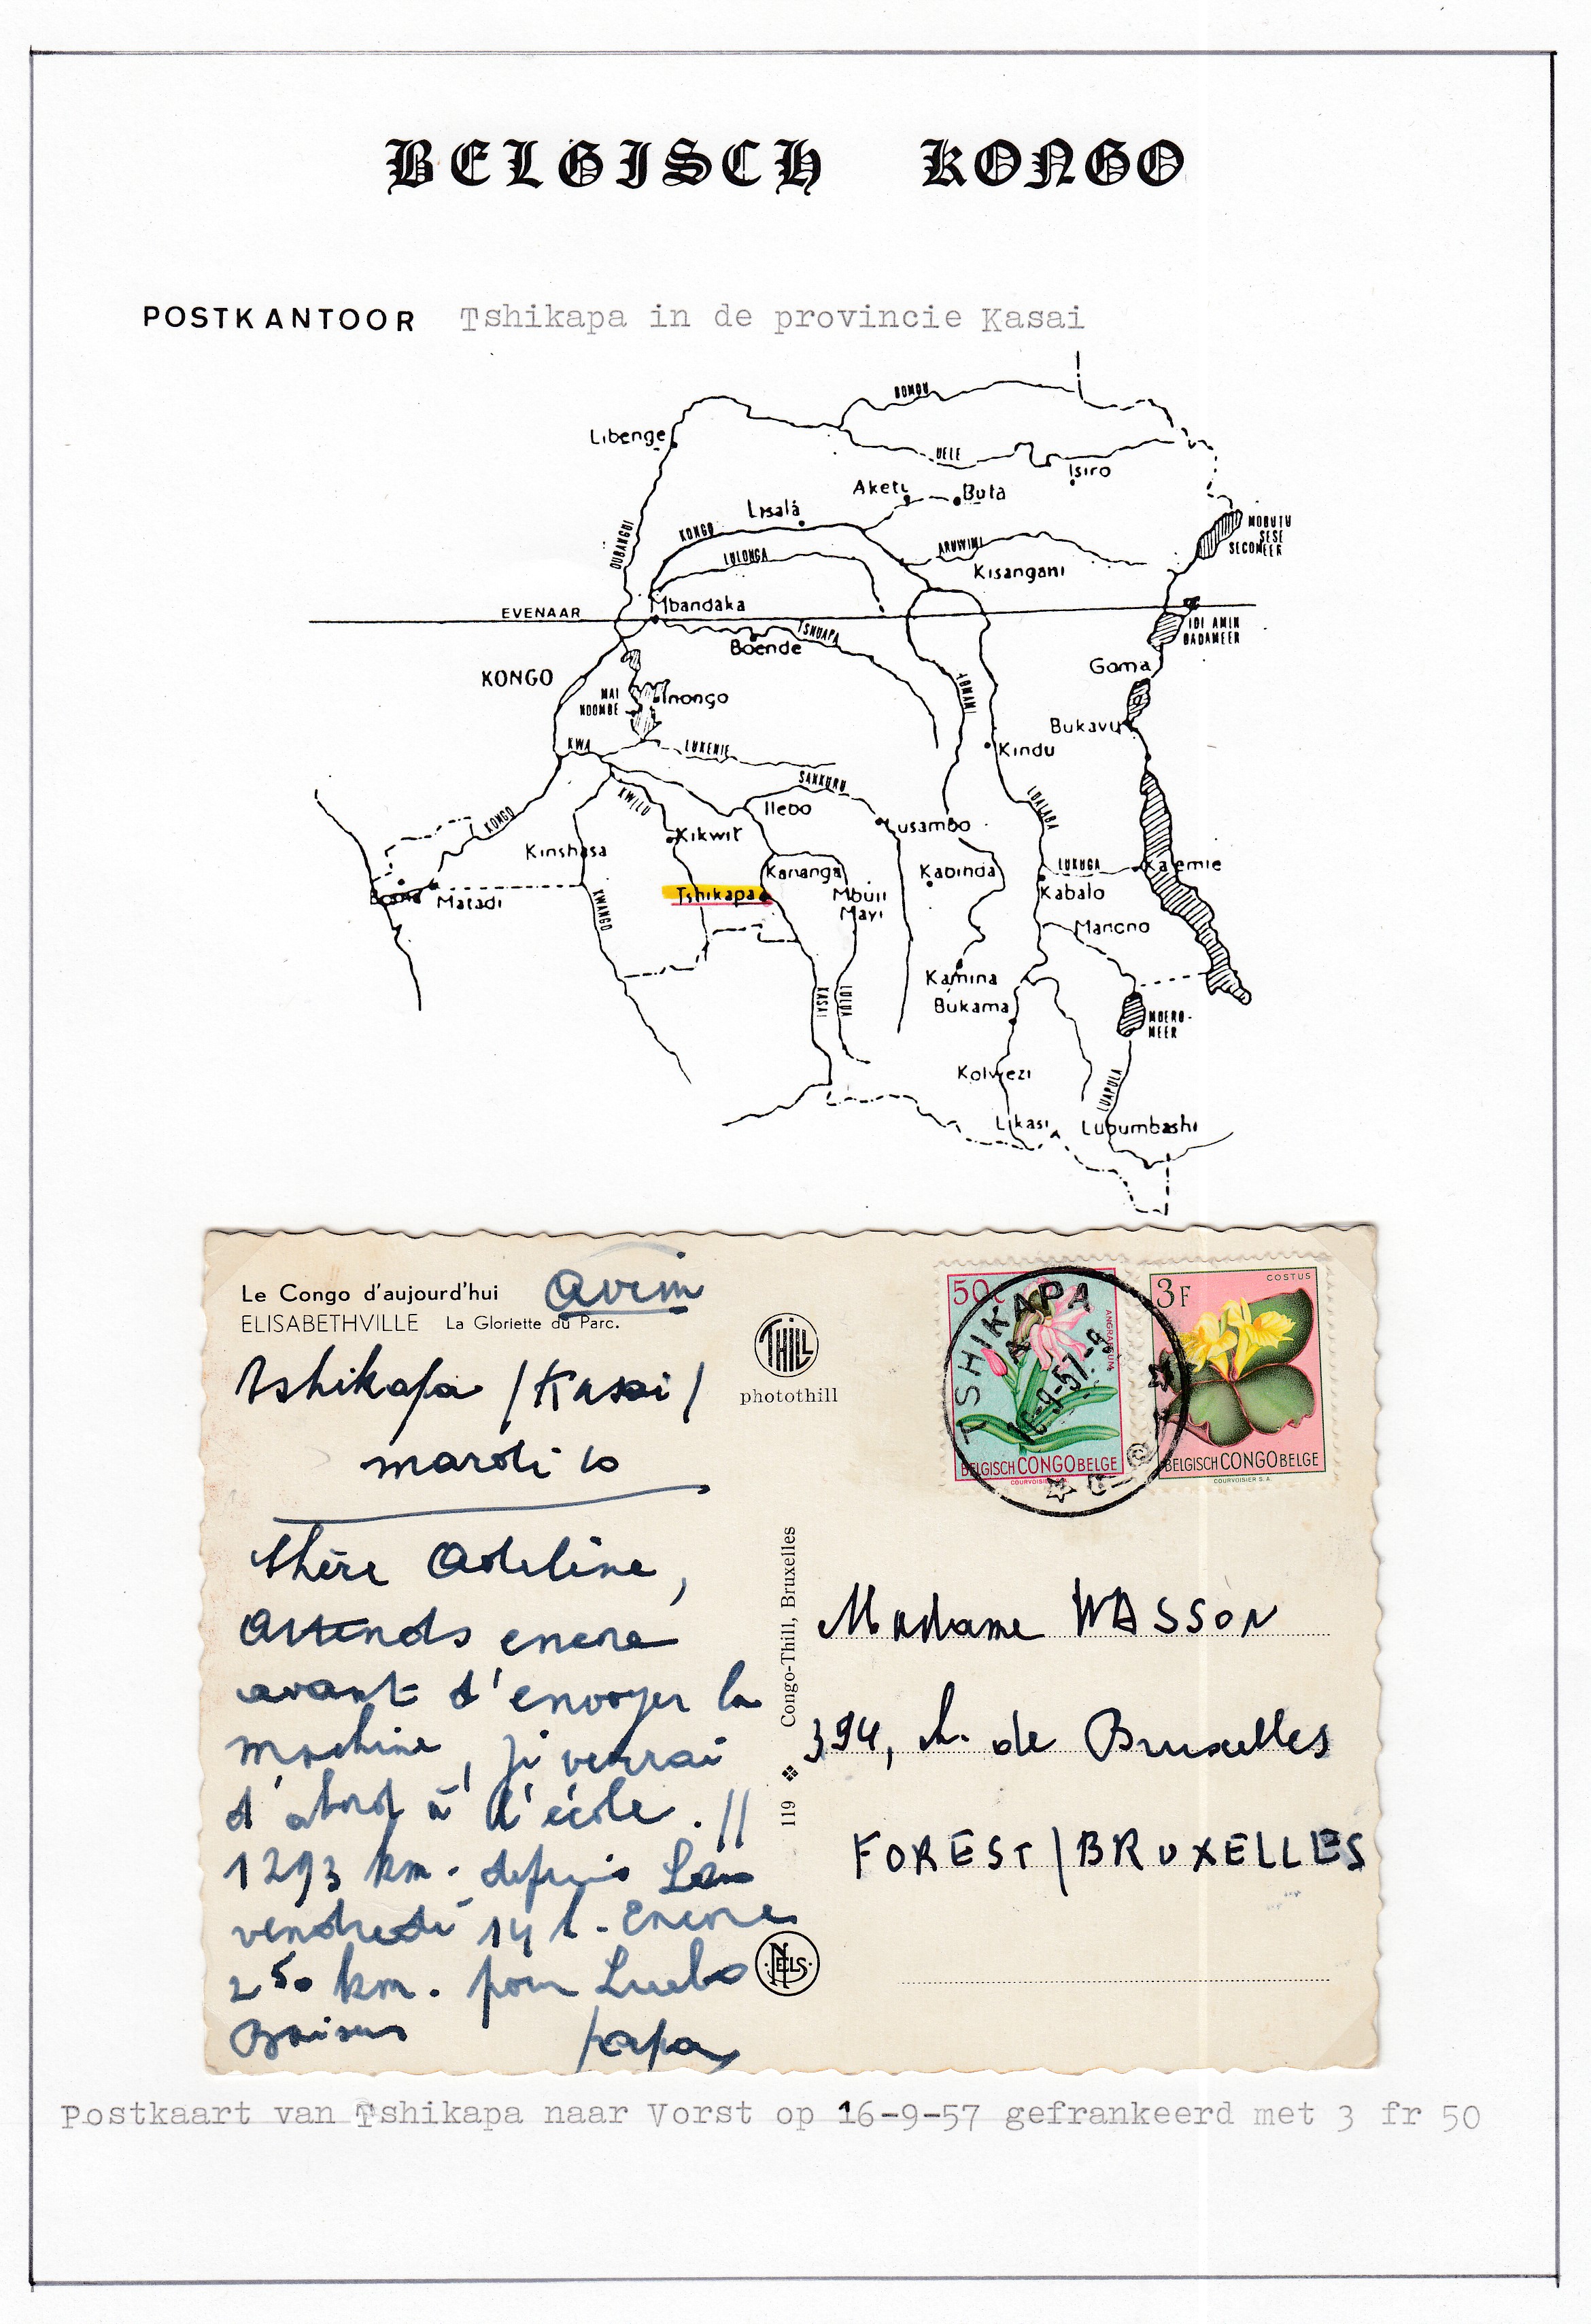 BELGISCH KONGO
POSTKANTOOR Tshikapa in de provincie Kasai
BOMU
Libenge
UELE
Isiro
Aketi
Buta
Lisala
MOBUTU
SESE
SECOMEER
OUBANGUI
KONGO
LULONGA
ARUWIMI
Kisangani
Mbandaka
EVENAAR
TSHUAPA
IDI AMIN
DADAMEER
Boende
KONGO
Goma
MAI
NDOMBE
Inongo
LOMAMI
Bukavu
KWA
LUKENIE
Kindu
SANKURU
KWILU
Ilebo
LUALABA
KONGO
Kikwit
Lusambo
Kinshasa
Kananga
Kabinda
LUKUGA
Kalemie
Boma
Matadi
KWANGO
Tshikapa
Mbuji
Mayi
Kabalo
Manono
Kamina
KASAI
LULUA
Bukama
MOERO-
MEER
Kolwezi
LUAPULA
Likasi
Lubumbashi
Le Congo d'aujourd'hui
ELISABETHVILLE La Gloriette du Parc.
avion
THILL
photothill
50c
ANGRAECUM
BELGISCH CONGO BELGE
COURVOISIER S.A.
3F
COSTUS
BELGISCH CONGO BELGE
COURVOISIER S.A.
TSHIKAPA
A
16-9-57-9
Tshikapa /Kasai/
mardi 10
Chère Adeline,
Attends encore
avant d'envoyer la
machine, je verrai
d'abord à l'école. //
1293 km. depuis
vendredi 14 h. Encore
250 km. pour Luebo
Baisers papa
119 ❖ Congo-Thill, Bruxelles
NELS
Madame WASSON
394, Ch. de Bruxelles
FOREST/BRUXELLES
Postkaart van Tshikapa naar Vorst op 16-9-57 gefrankeerd met 3 fr 50